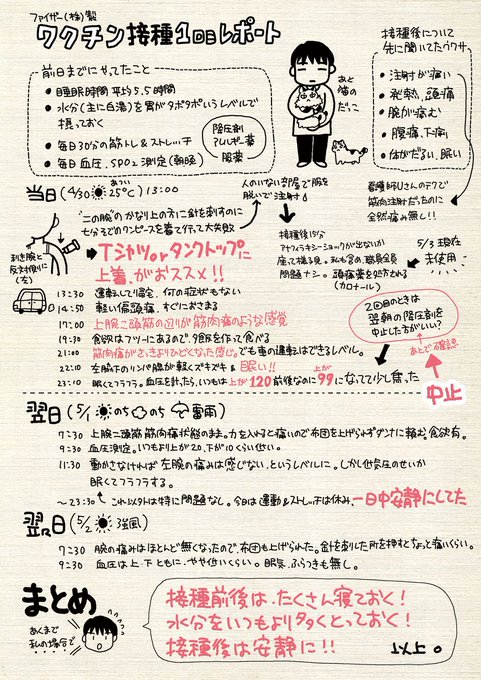 ファイザー(株)製
ワクチン接種1回目レポート
前日までにやってたこと
● 睡眠時間 平均5.5時間
● 水分(主に白湯)を胃がタポタポいうレベルで
摂っておく
● 毎日30分の筋トレ&ストレッチ
● 毎日血圧、SPO2測定(朝晩)
降圧剤
アレルギー薬
服薬
あと
猫の
だっこ
接種後について
先に聞いてたウワサ
・注射が痛い
・発熱、頭痛
・腕が痛む
・腹痛、下痢
・体がだるい、眠い
当日(4/30 25℃)13:00
あつい
人のいない部屋で服を
脱いで注射
看護師Uさんのテクで
筋肉注射だったのに
全然痛み無し!!
"二の腕"のかなり上の方に針を刺すのに
七分そでのワンピースを着て行って大失敗
利き腕と
反対側に
(左)
Tシャツorタンクトップに
上着、がおススメ!!
接種後15分
アナフィラキシーショックが出ないか
座って様子見。私も含め、職員全員
問題ナシ。頭痛薬を処方される
(カロナール)
5/3現在
未使用
13:30 運転して帰宅、何の症状もない
14:50 軽い偏頭痛、すぐにおさまる
17:00 上腕二頭筋の辺りが筋肉痛のような感覚
19:30 食欲はフツーにあるので、夕飯を作って食べる
21:00 筋肉痛がさっきよりひどくなった感じ。でも車の運転はできるレベル。
22:10 左脇下のリンパ腺が軽くズキズキ&眠い!!
23:10 眠くてフラフラ。血圧を計ったら、いつもは上が120前後なのに上が99になってて少し焦った
2回目のときは
翌朝の降圧剤を
中止した方がいい?
あとで確認
中止
翌日(5/1 のち のち 雷雨)
7:30 上腕二頭筋 筋肉痛状態のまま。力を入れると痛いので布団を上げられずダンナに頼む。食欲有。
9:30 血圧測定。いつもより上が20、下が10くらい低い。
11:30 動かさなければ左腕の痛みは感じない、というレベルに。しかし低気圧のせいか
眠くてフラフラする。
〜23:30 これ以外は特に問題なし。今日は運動&ストレッチは休み、一日中安静にしてた
翌々日(5/2 強風)
7:30 腕の痛みはほとんど無くなったので、布団も上げられた。針を刺した所を押すとちょっと痛いくらい。
9:30 血圧は上・下ともに、やや低いくらい。眠気、ふらつきも無し。
まとめ
あくまで
私の場合で
接種前後は、たくさん寝ておく!
水分をいつもより多くとっておく!
接種後は安静に!!
以上。